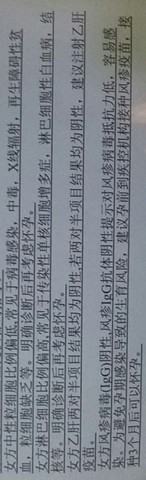 女方中性粒细胞比例偏低,常见于病毒感染,中毒,X线辐射,再生障碍性贫
血,粒细胞缺乏等。明确诊断后再考虑怀孕。
女方淋巴细胞比例偏高,常见于传染性单核细胞增多症,淋巴细胞性白血病,结
核等。明确诊断后再考虑怀孕。
女方乙肝两对半项目结果均为阴性,若两对半项目结果均为阴性,建议注射乙肝
疫苗。
女方风疹病毒(IgG)阴性,风疹IgG抗体阴性提示对风疹病毒抵抗力低,容易感
染。为避免孕期感染导致的生育风险,建议孕前到疾控机构接种风疹疫苗,接
种3个月后可以怀孕。